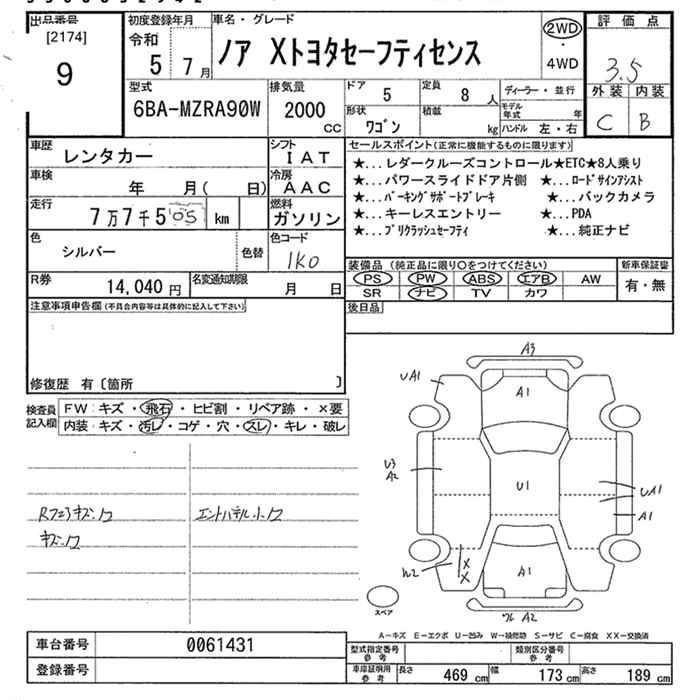 出品番号
[2174]
9
初度登録年月
令和
5 7月
車名・グレード
ノア Xトヨタセーフティセンス
2WD
・
4WD
評価点
3.5
外装 内装
C B
型式
6BA-MZRA90W
排気量
2000
CC
ドア
5
定員
8 人
形状
ワゴン
積載
kg
ディーラー・並行
モデル年式 年
ハンドル 左・右
車歴
レンタカー
シフト
IAT
車検
年 月( 日)
冷房
AAC
走行
7万7千505 km
燃料
ガソリン
色
シルバー
色替
色コード
1K0
R券
14,040 円
名変通知期限
月 日
セールスポイント(正常に機能するものに限ります)
★...レダークルーズコントロール★ETC★8人乗り
★...パワースライドドア片側 ★...ロードサインアシスト
★...パーキングサポートブレーキ ★...バックカメラ
★...キーレスエントリー ★...PDA
★...プリクラッシュセーフティ ★...純正ナビ
装備品(純正品に限り○をつけてください)
PS PW ABS エアB AW
SR ナビ TV カワ
新車保証書
有・無
注意事項申告欄(不具合内容等は具体的に記入して下さい)
後日品
修復歴 有〔箇所 〕
検査員記入欄
FW:キズ・飛石・ヒビ割・リペア跡・×要
内装:キズ・汚レ・コゲ・穴・スレ・キレ・破レ
A3
UA1
A1
U3
A2
U1
UA1
A1
W2
XX
A1
A2
スペア
A-キズ E-エクボ U-凹み W-補修跡 S-サビ C-腐食 XX-交換済
車台番号
0061431
登録番号
型式指定番号
参考
類別区分番号
参考
車庫証明用
参考
長さ 469 cm 幅 173 cm 高さ 189 cm